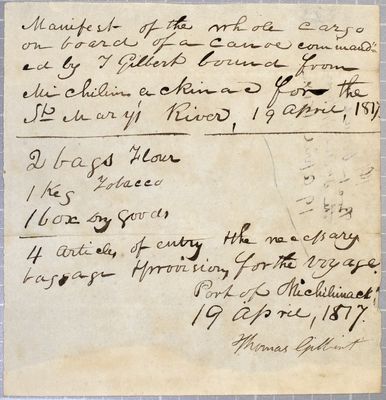 Manifest of the whole cargo
on board of a canoe command=
ed by T Gilbert bound from
Michilimackinac for the
St Mary's River, 19 April, 1817.
2 bags Flour
1 Keg Tobacco
1 box Dry Goods
4 articles of entry & the necessary
baggage & provisions for the voyage.
Port of Michilimack:
19 April, 1817.
Thomas Gilbert